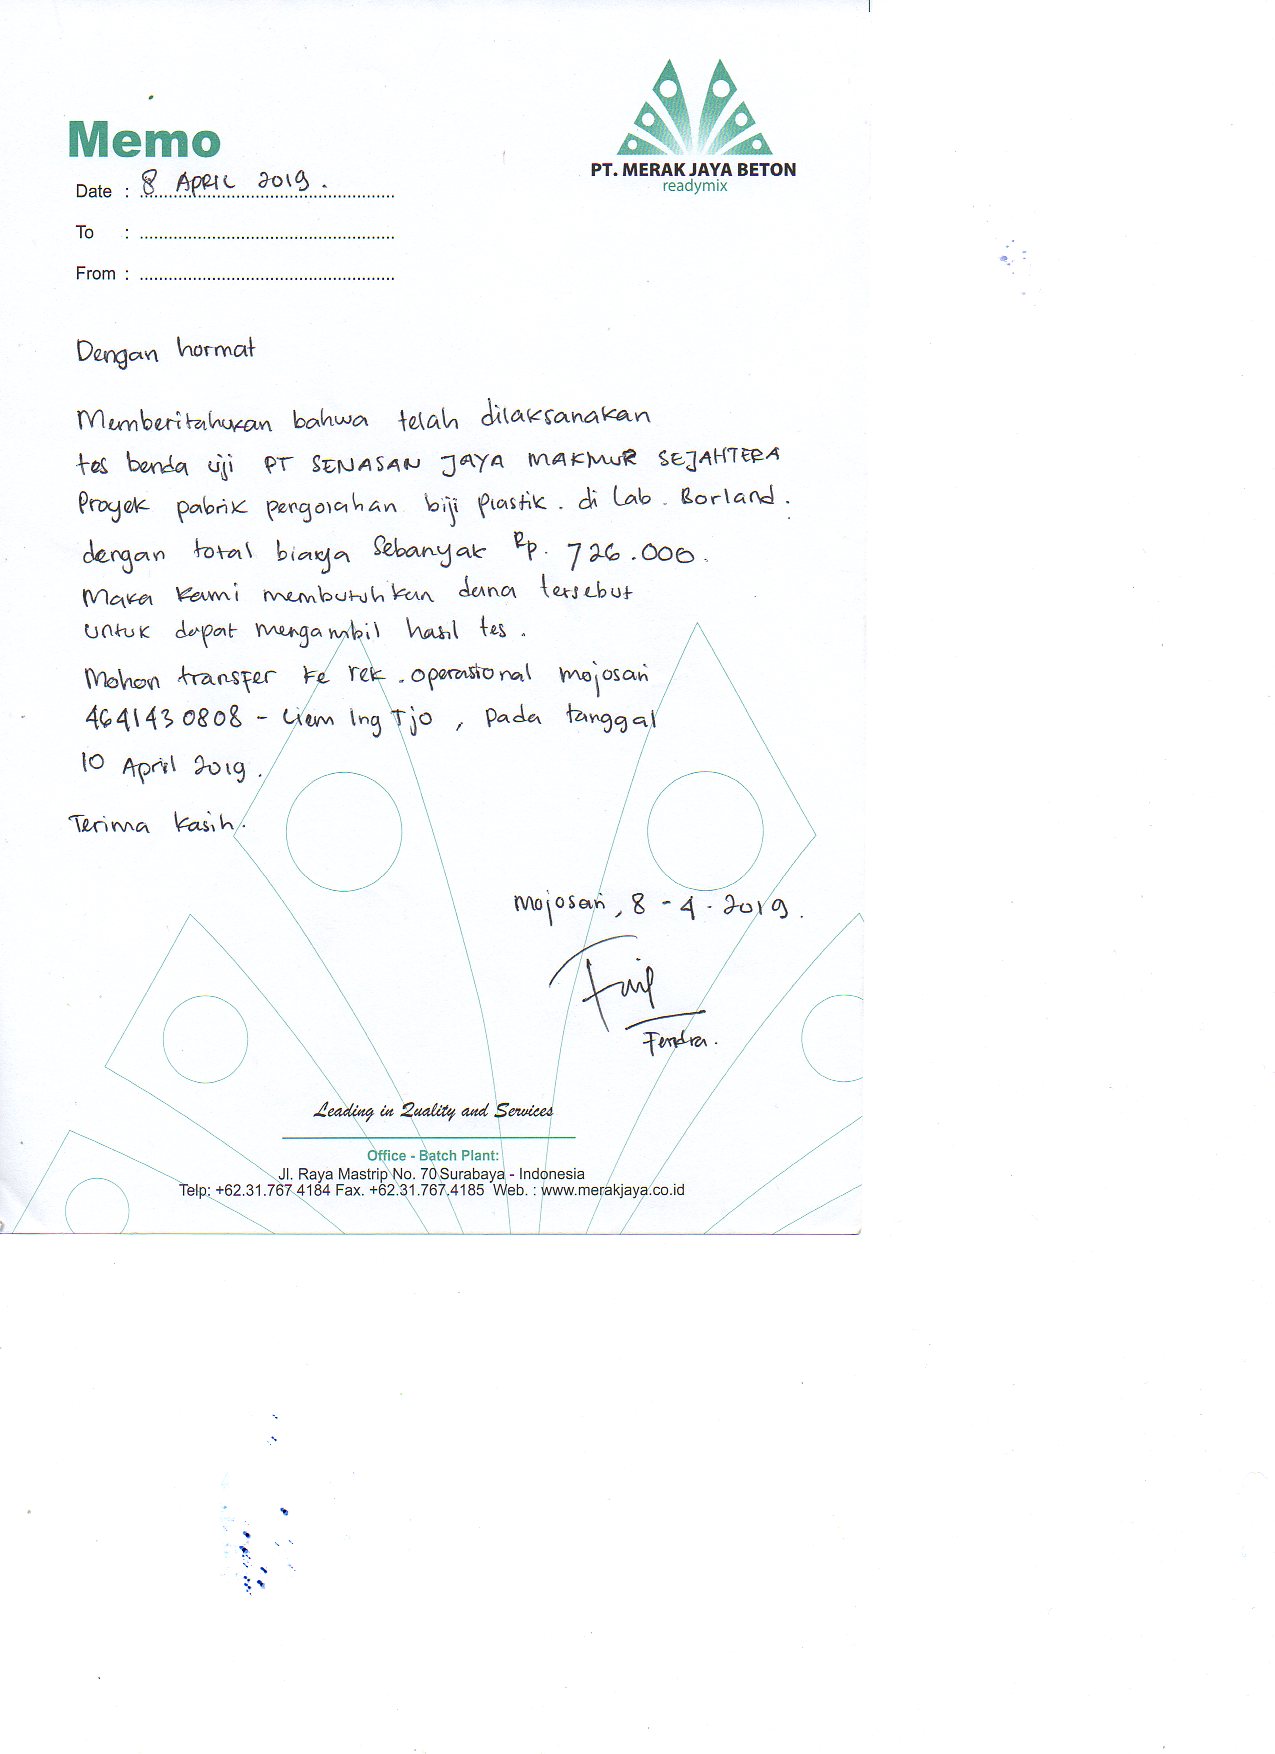 Memo
PT. MERAK JAYA BETON
readymix
Date : 8 APRIL 2019.
To :
From :
Dengan hormat
Memberitahukan bahwa telah dilaksanakan
tes benda uji PT SENASAN JAYA MAKMUR SEJAHTERA
Proyek pabrik pengolahan biji plastik. di Lab. Borland.
dengan total biaya Sebanyak Rp. 726.000.
Maka kami membutuhkan dana tersebut
untuk dapat mengambil hasil tes.
Mohon transfer ke rek. operasional mojosari
4641430808 - Liem Ing Tjo, pada tanggal
10 April 2019.
Terima kasih.
Mojosari, 8 - 4 - 2019.
Fendra.
Leading in Quality and Services
Office - Batch Plant:
Jl. Raya Mastrip No. 70 Surabaya - Indonesia
Telp: +62.31.767 4184 Fax. +62.31.767.4185 Web. : www.merakjaya.co.id